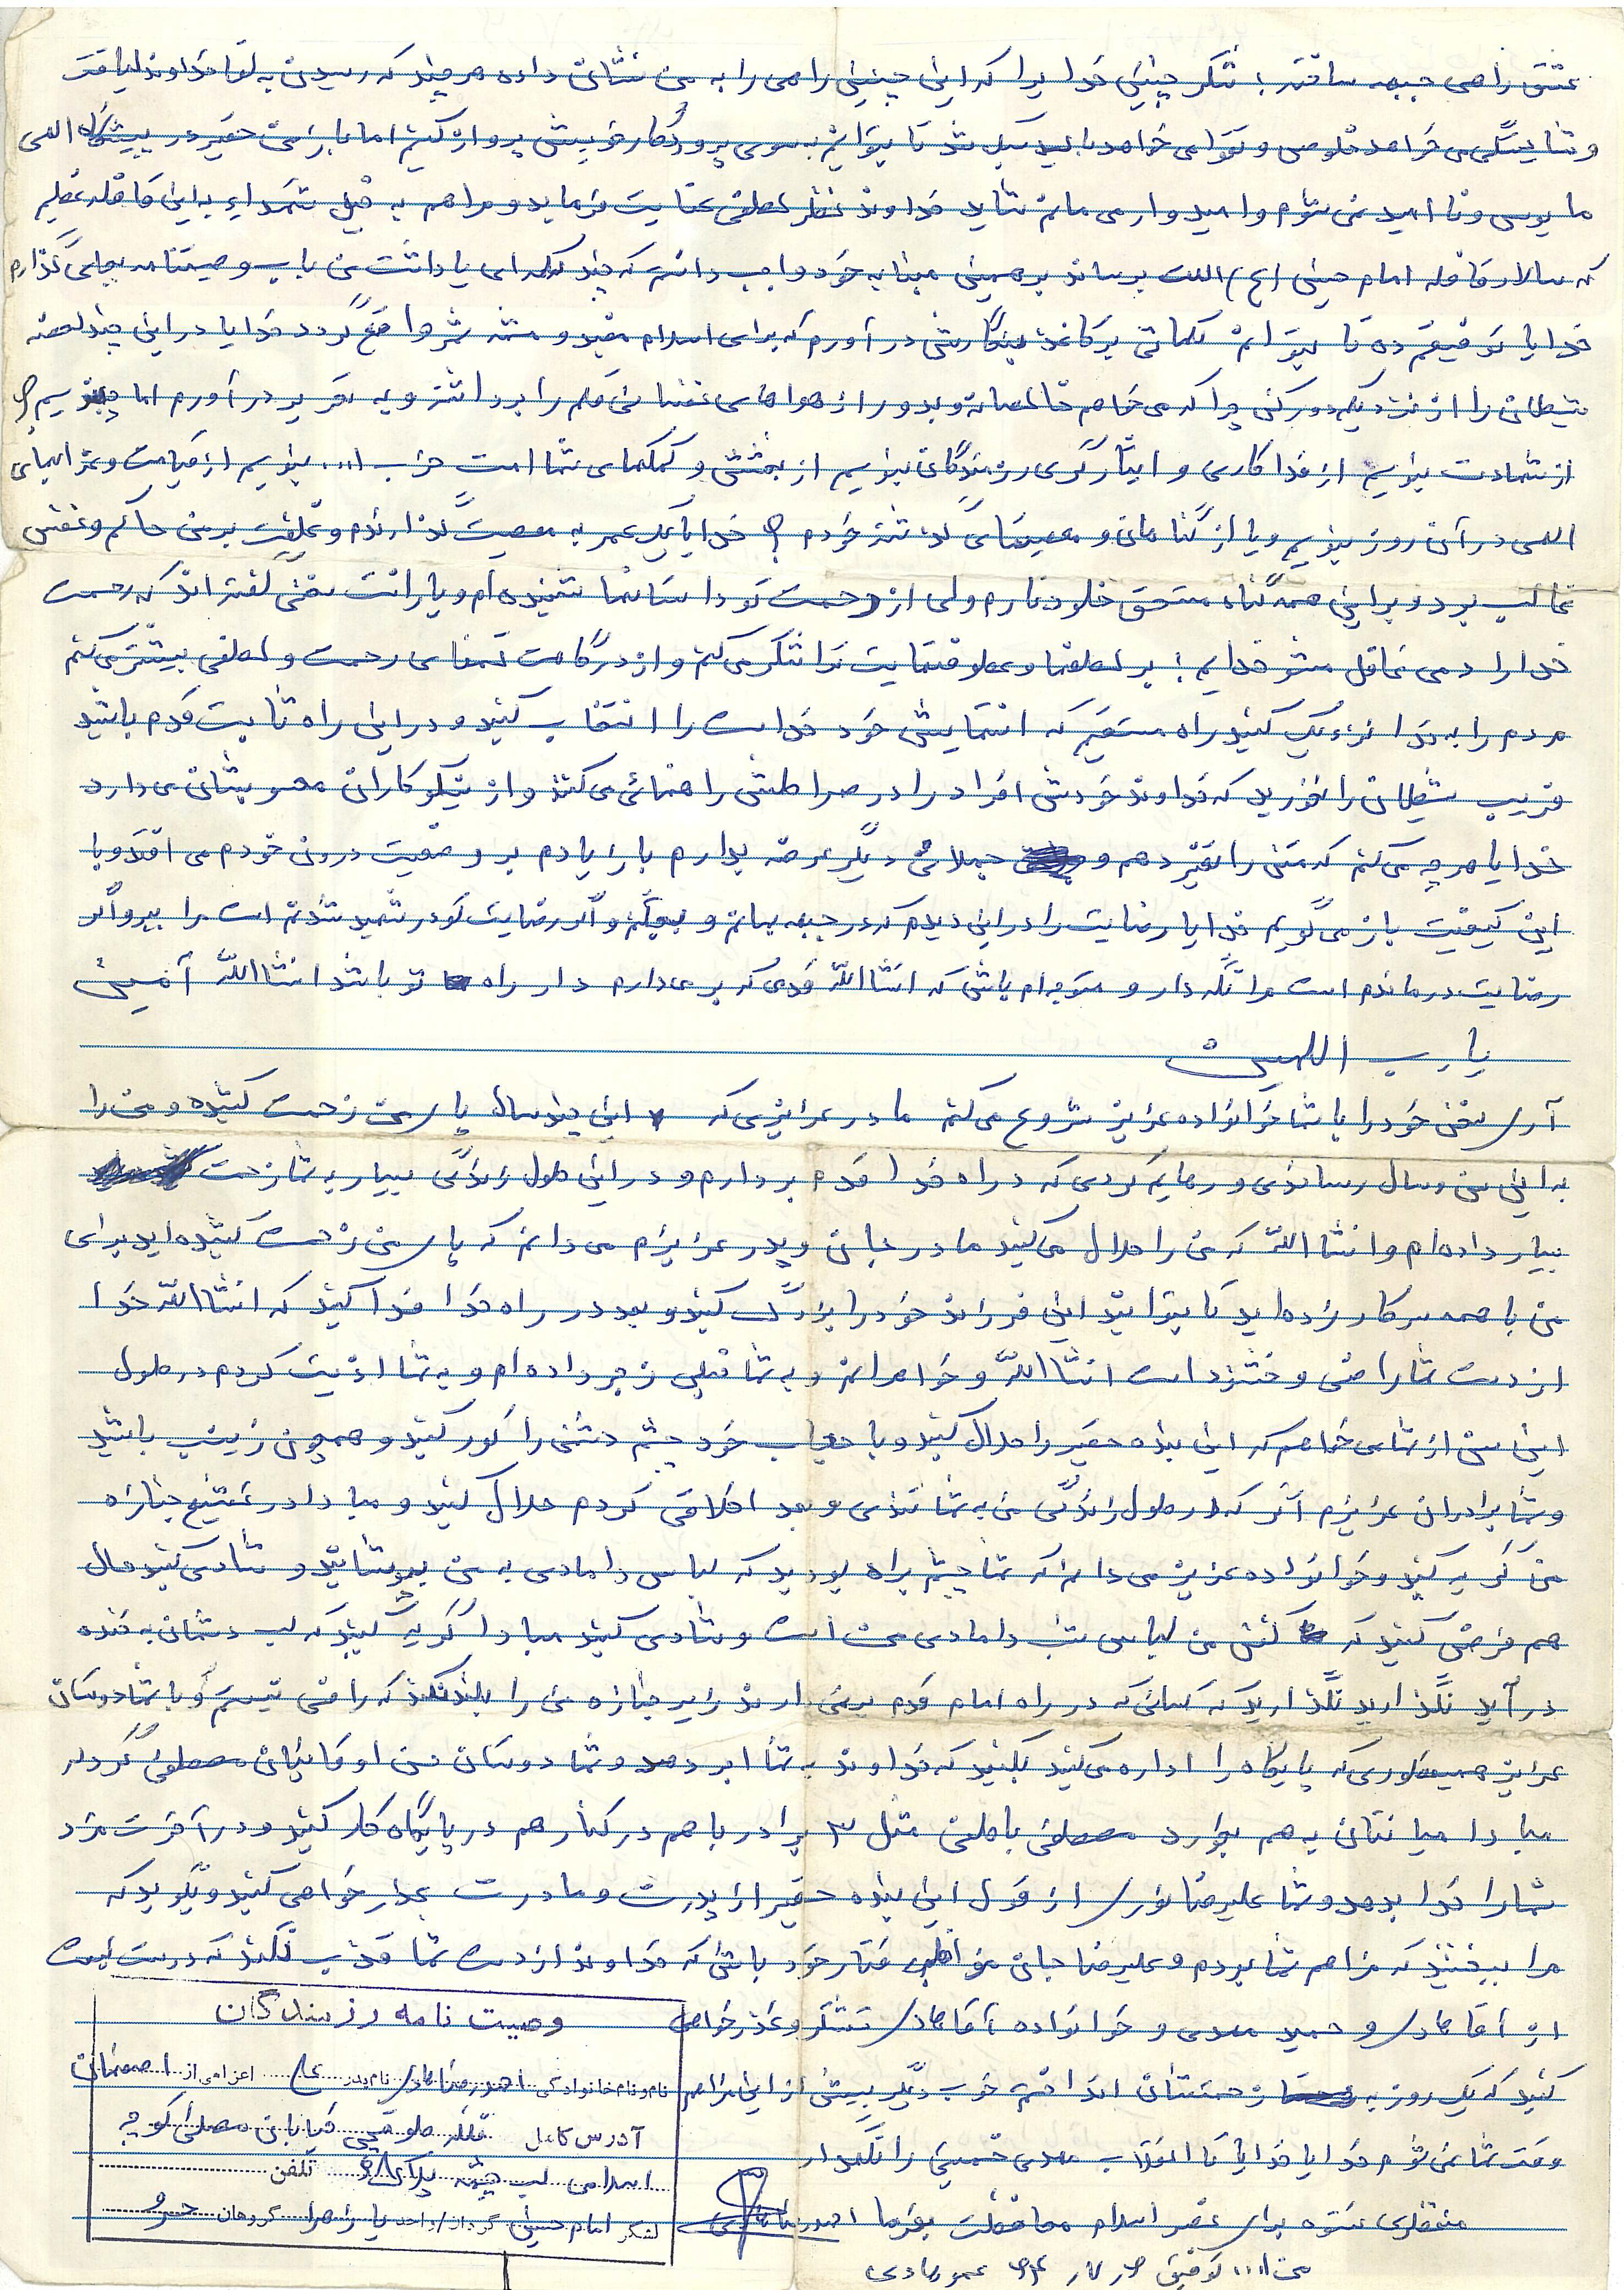 عشق راهی جبهه ساخته؛ شکر چنین خدا را که این چنین راهی را به من نشان داده هر چند که رسیدن به لقا خداوند لیاقت
و شایستگی می‌خواهد خلوص و تقوا می خواهد باید سبکبال شد تا بتوانم بسوی پروردگار خویش پرواز کنم اما باز من حقیر در پیشگاه الهی
مایوس و نا امید نمی شوم و امیدوار می مانم شاید خداوند نظر لطفی عنایت فرماید و مرا هم به خیل شهداء به این قافله عظیم
که سالار قافله امام حسین (ع) است برساند بر همین مبنا به خود واجب دانسته که چند کلمه ای یاداشت من باب وصیتنامه بجای گذارم
خدایا توفیقم ده تا بتوانم کلماتی بر کاغذ بنگارش در آورم که برای اسلام مفید و مثمر ثمر واقع گردد خدایا در این چند لحظه
شیطان را از نزدیکم دور کن چرا که می خواهم خالصانه و بدور از هواهای نفسانی قلم را برداشته و به تحریر در آورم اما چه بنویسم؟
از شهادت بنویسم از فداکاری و ایثارگری رزمندگان بنویسم از بخشش و کمکهای شما امت حزب ا... بنویسم از قیامت و عذابهای
الهی در آن روز بنویسم و یا از گناهان و معصیتهای گذشته خودم ؟ خدایا یک عمر به معصیت گذراندم و غفلت بر من حاکم و نفس
غالب بود و بر این همه گناه مستحق خلود نارم ولی از رحمت تو داستانها شنیده ام و یارانت سخن گفته اند که رحمت
خدا را دمی غافل مشو خدایم؛ بر لطفها و عطوفتهایت ترا شکر می کنم و از درگاهت تمنای رحمت و لطفی بیشتر می کنم
مردم را به خدا نزدیک کنید راه مستقیم که انتهایش خود خداست را انتخاب کنید و در این راه ثابت قدم باشید
فریب شیطان را نخورید که خداوند خودش افراد را در صراطش راهنمائی می کند و از نیکوکاران محسوبشان می دارد
خدایا هر چه می کنم که متن را تغییر دهم و جملاتی دیگر عرضه بدارم باز یادم بر وضعیت درون خودم می افتد و با
این کیفیت باز می گویم خدایا رضایت را در این دیدم که در جبهه بمانم و بجنگم و اگر رضایت تو در شهید شدنم است مرا ببر و اگر
رضایت در ماندنم است مرا نگه دار و متوجه ام باش که انشاالله قدمی که بر می دارم در راه تو باشد انشاالله آمین
یا رب العالمین
آری سخن خود را با شما خانواده عزیز شروع می کنم مادر عزیزی که این چند سال پای من زحمت کشیده و من را
به این سن و سال رساندی و رهایم کردی که در راه خدا قدم بردارم و در این طول زندگی بسیار به شما زحمت
بسیار داده ام و انشاالله که من را حلال می کنید مادر جان و پدر عزیزم می دانم که پای من زحمت کشیده اید برای
من با همه سر کار زده اید تا بتوانید این فرزند خود را بزرگ کنید و بعد در راه خدا فدا کنید که انشاالله خدا
از دست شما راضی و خشنود است انشاالله و خواهرانم و به شما خیلی زجر داده ام و به شما اذیت کردم در طول
این سن از شما می خواهم که این بنده حقیر را حلال کنید و با حجاب خود چشم دشمن را کور کنید و همچون زینب باشید
و شما برادران عزیزم اگر که در طول زندگی من به شما تندی و بد اخلاقی کردم حلال کنید و مبادا در تشییع جنازه
من گریه کنید و خانواده عزیز می دانم که شما چشم براه بودید که لباس دامادی به من بپوشانید و شادی کنید حال
هم فرض کنید که کفن من لباس شب دامادی من است و شادی کنید مبادا گریه کنید که لب دشمنان به خنده
در آید نگذارید نگذارید که کسانی که در راه امام قدم بر نمی دارند زیر جنازه من را بلند کنند که راضی نیستم و با شما دوستان
عزیز همینطوری که پایگاه را اداره می کنید بکنید که خداوند به شما اجر دهد و شما دوستان من مصطفی
مبادا میانتان به هم بخورد مصطفی مثل ۳ برادر با هم در کنار هم در پایگاه کار کنید و در آخرت مزد
شما را خدا بدهد و شما علیرضا از قول این بنده حقیر از پدرت و مادرت عذر خواهی کنید و بگوید که
مرا ببخشید که مزاحم شما بودم و علیرضا جان مواظب رفتار خود باش که خداوند از دست شما نکند که درست نیست
از آقا و حمید مهدی و خانواده آقا تشکر و عذر خواهی
کنید که یک روز به زحمتشان انداختم خوب دیگر بیش از این مزاحم
وقت شما نمی شوم خدایا خدایا تا انقلاب مهدی خمینی را نگهدار
منتظری ستوه برای نصر اسلام محافظت بفرما
من ا... توفیق
وصیت نامه رزمندگان
نام و نام خانوادگی احمدرضا نام پدر علی اعزامی از اصفهان
آدرس کامل فلکه طوقچی خیابان مصلی کوچه
اسلامی لب چشمه پلاک تلفن
لشکر امام حسین گردان/واحد یا زهرا گروهان